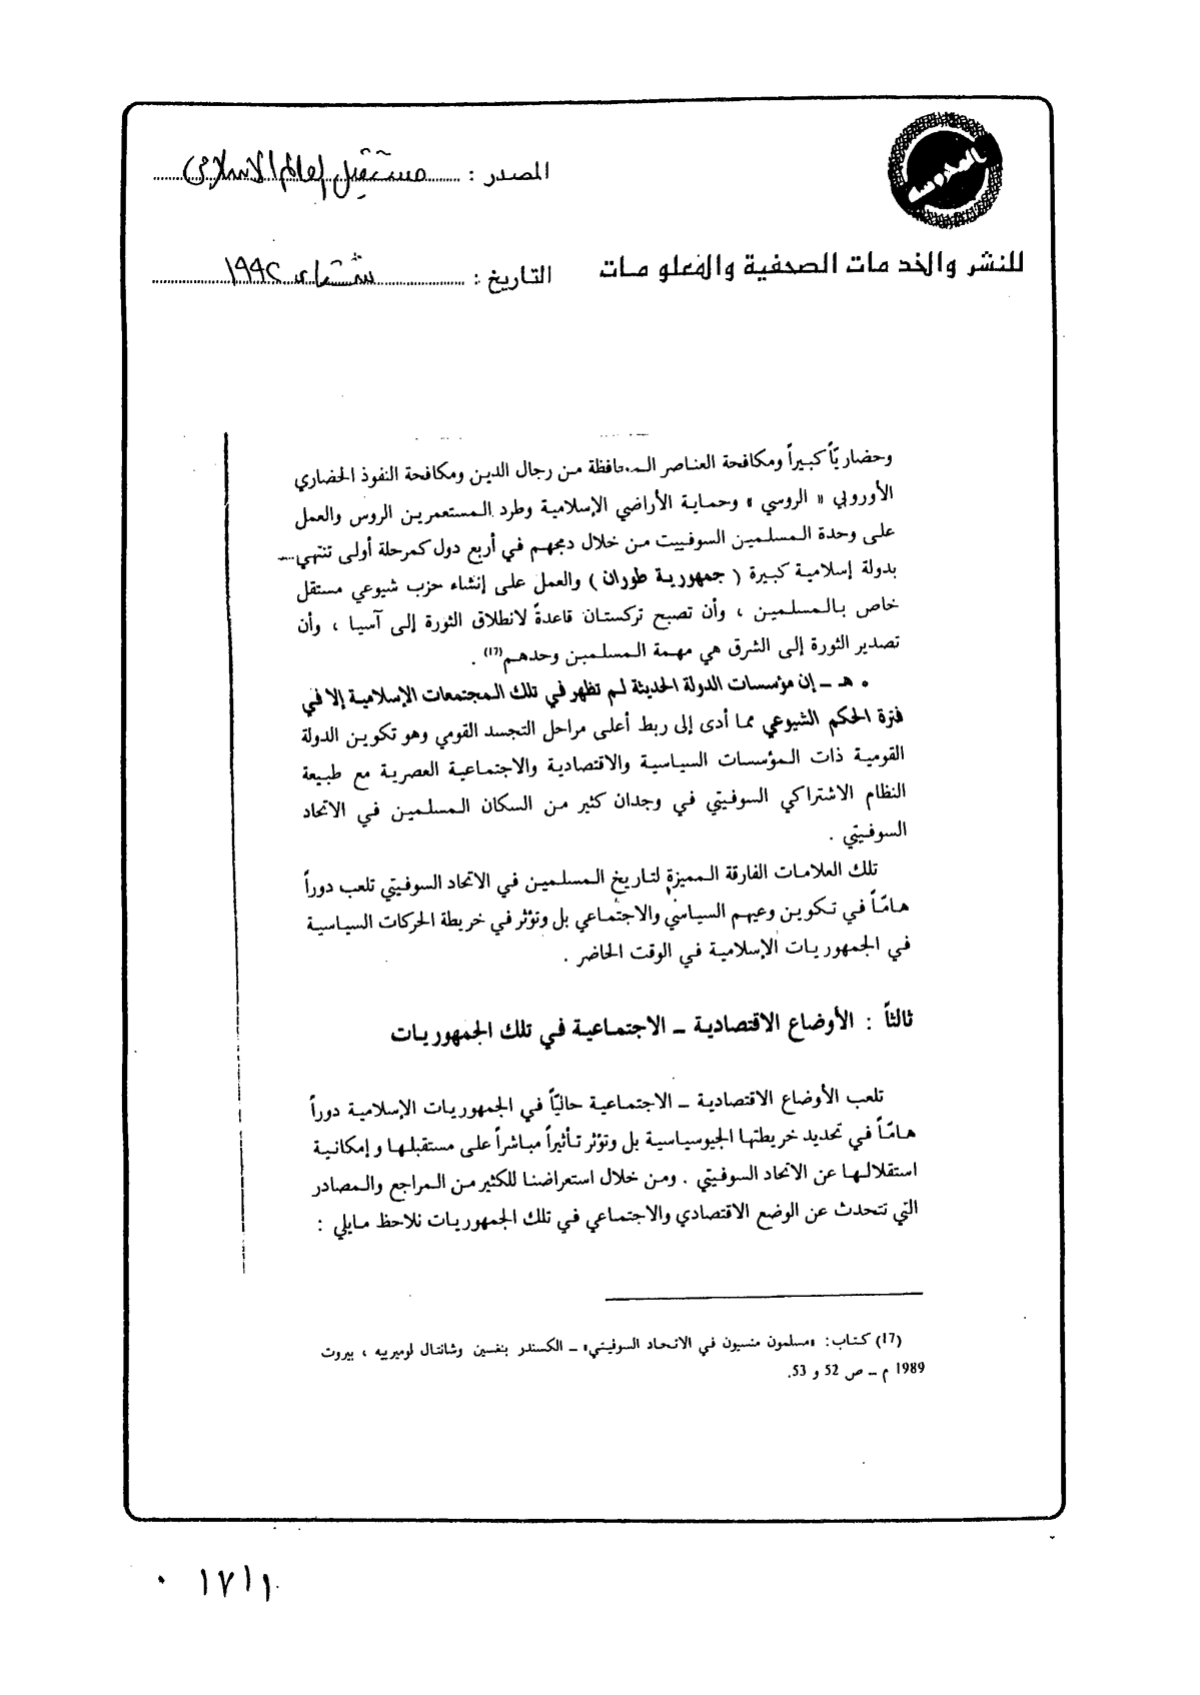 المحروسة
المصدر : مستقبل العالم الاسلامى
للنشر والخدمات الصحفية والمعلومات
التاريخ : شتاء ١٩٩٢
وحضاريّاً كبيراً ومكافحة العناصر المحافظة من رجال الدين ومكافحة النفوذ الحضاري
الأوروبي « الروسي » وحماية الأراضي الإسلامية وطرد المستعمرين الروس والعمل
على وحدة المسلمين السوفييت من خلال دمجهم في أربع دول كمرحلة أولى تنتهي
بدولة إسلامية كبيرة ( جمهورية طوران ) والعمل على إنشاء حزب شيوعي مستقل
خاص بالمسلمين ، وأن تصبح تركستان قاعدةً لانطلاق الثورة إلى آسيا ، وأن
تصدير الثورة إلى الشرق هي مهمة المسلمين وحدهم(17) .
• هـ ــ إن مؤسسات الدولة الحديثة لم تظهر في تلك المجتمعات الإسلامية إلا في
فترة الحكم الشيوعي مما أدى إلى ربط أعلى مراحل التجسد القومي وهو تكوين الدولة
القومية ذات المؤسسات السياسية والاقتصادية والاجتماعية العصرية مع طبيعة
النظام الاشتراكي السوفيتي في وجدان كثير من السكان المسلمين في الاتحاد
السوفيتي .
تلك العلامات الفارقة المميزة لتاريخ المسلمين في الاتحاد السوفيتي تلعب دوراً
هامّاً في تكوين وعيهم السياسي والاجتماعي بل وتؤثر في خريطة الحركات السياسية
في الجمهوريات الإسلامية في الوقت الحاضر .
ثالثاً : الأوضاع الاقتصادية ــ الاجتماعية في تلك الجمهوريات
تلعب الأوضاع الاقتصادية ــ الاجتماعية حاليّاً في الجمهوريات الإسلامية دوراً
هامّاً في تحديد خريطتها الجيوسياسية بل وتؤثر تأثيراً مباشراً على مستقبلها وإمكانية
استقلالها عن الاتحاد السوفيتي . ومن خلال استعراضنا للكثير من المراجع والمصادر
التي تتحدث عن الوضع الاقتصادي والاجتماعي في تلك الجمهوريات نلاحظ مايلي :
(17) كتاب: «مسلمون منسيون في الاتحاد السوفيتي» ــ الكسندر بنغسين وشانتال لوميرييه ، بيروت
1989 م ــ ص 52 و 53.